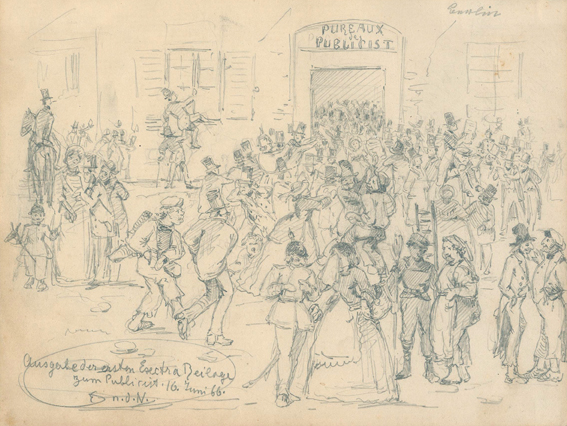 PUREAUX
de
PUBLICIST
Ausgabe der ersten Exctra Beilage
zum Publicist. 16. Juni 66.
n. d. N.